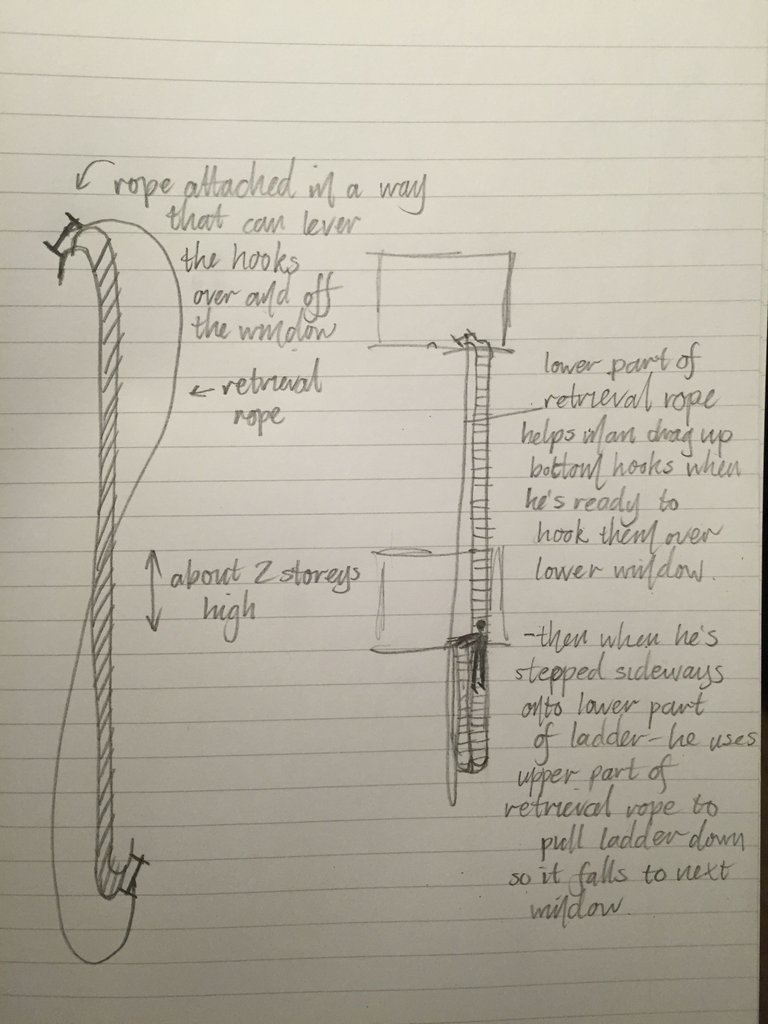 rope attached in a way
that can lever
the hooks
over and off
the window
retrieval
rope
about 2 storeys
high
lower part of
retrieval rope
helps man drag up
bottom hooks when
he's ready to
hook them over
lower window.
-then when he's
stepped sideways
onto lower part
of ladder-he uses
upper part of
retrieval rope to
pull ladder down
so it falls to next
window.